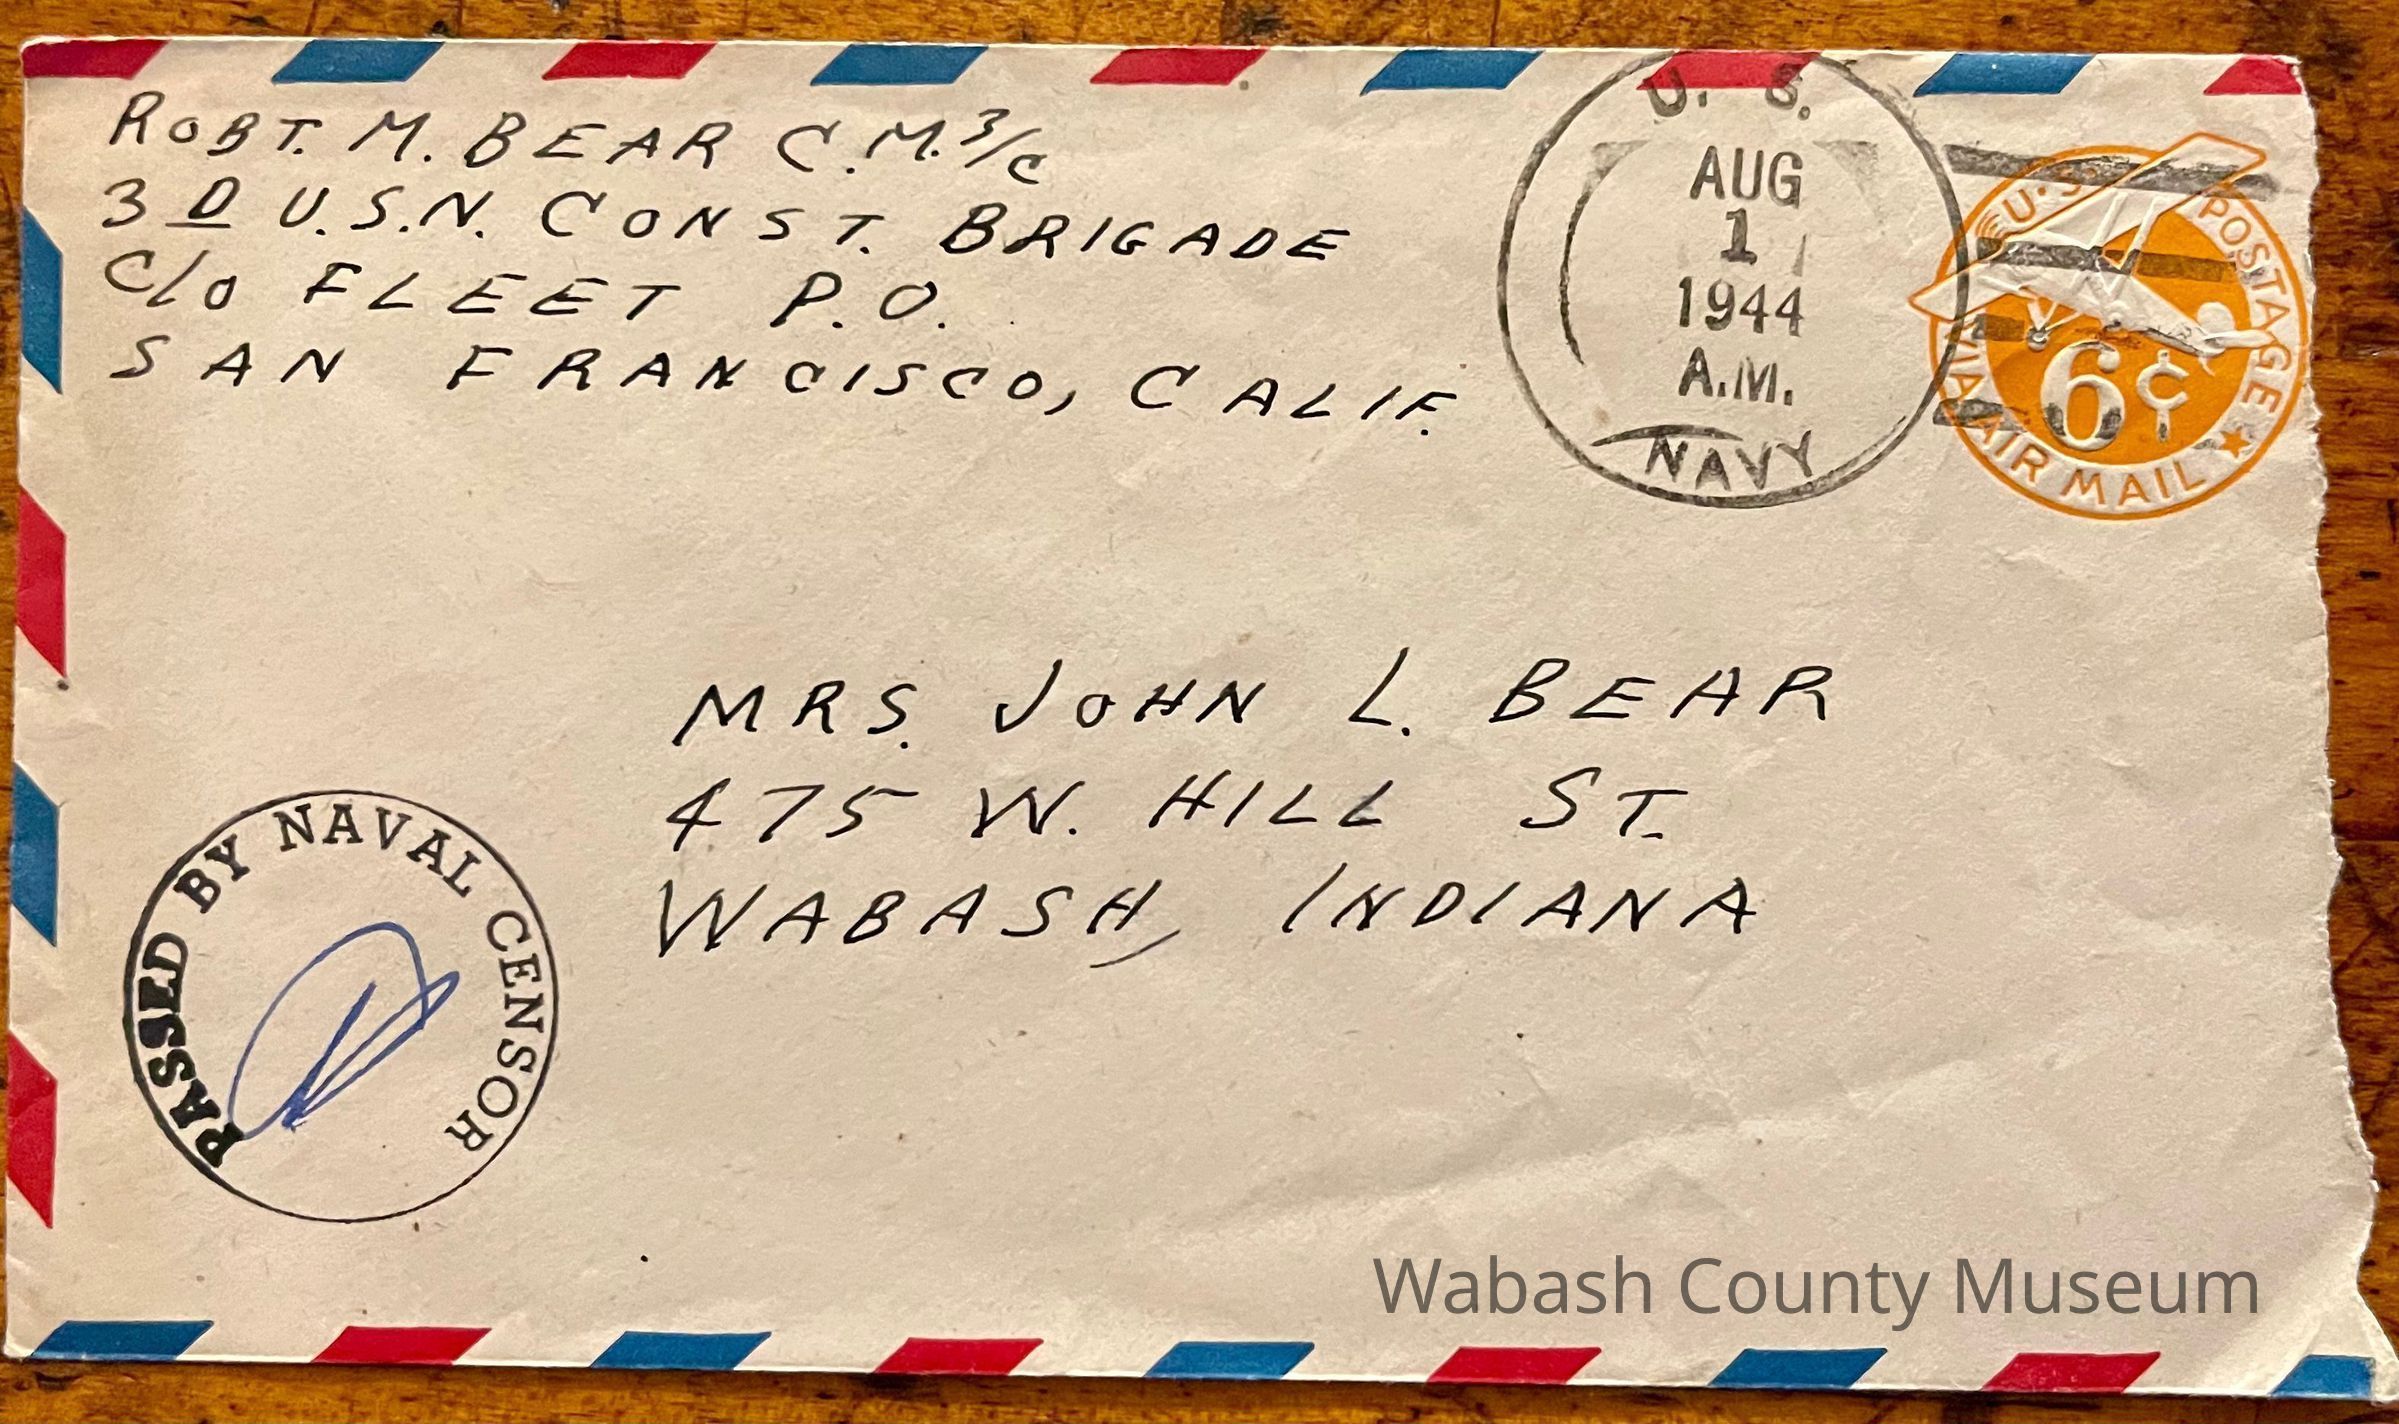 ROBT. M. BEAR C.M. 3/c
3D U.S.N. CONST. BRIGADE
C/O FLEET P.O.
SAN FRANCISCO, CALIF.
U. S.
AUG
1
1944
A.M.
NAVY
U.S. POSTAGE
6¢
VIA AIR MAIL
MRS. JOHN L. BEAR
475 W. HILL ST.
WABASH, INDIANA
PASSED BY NAVAL CENSOR
Wabash County Museum